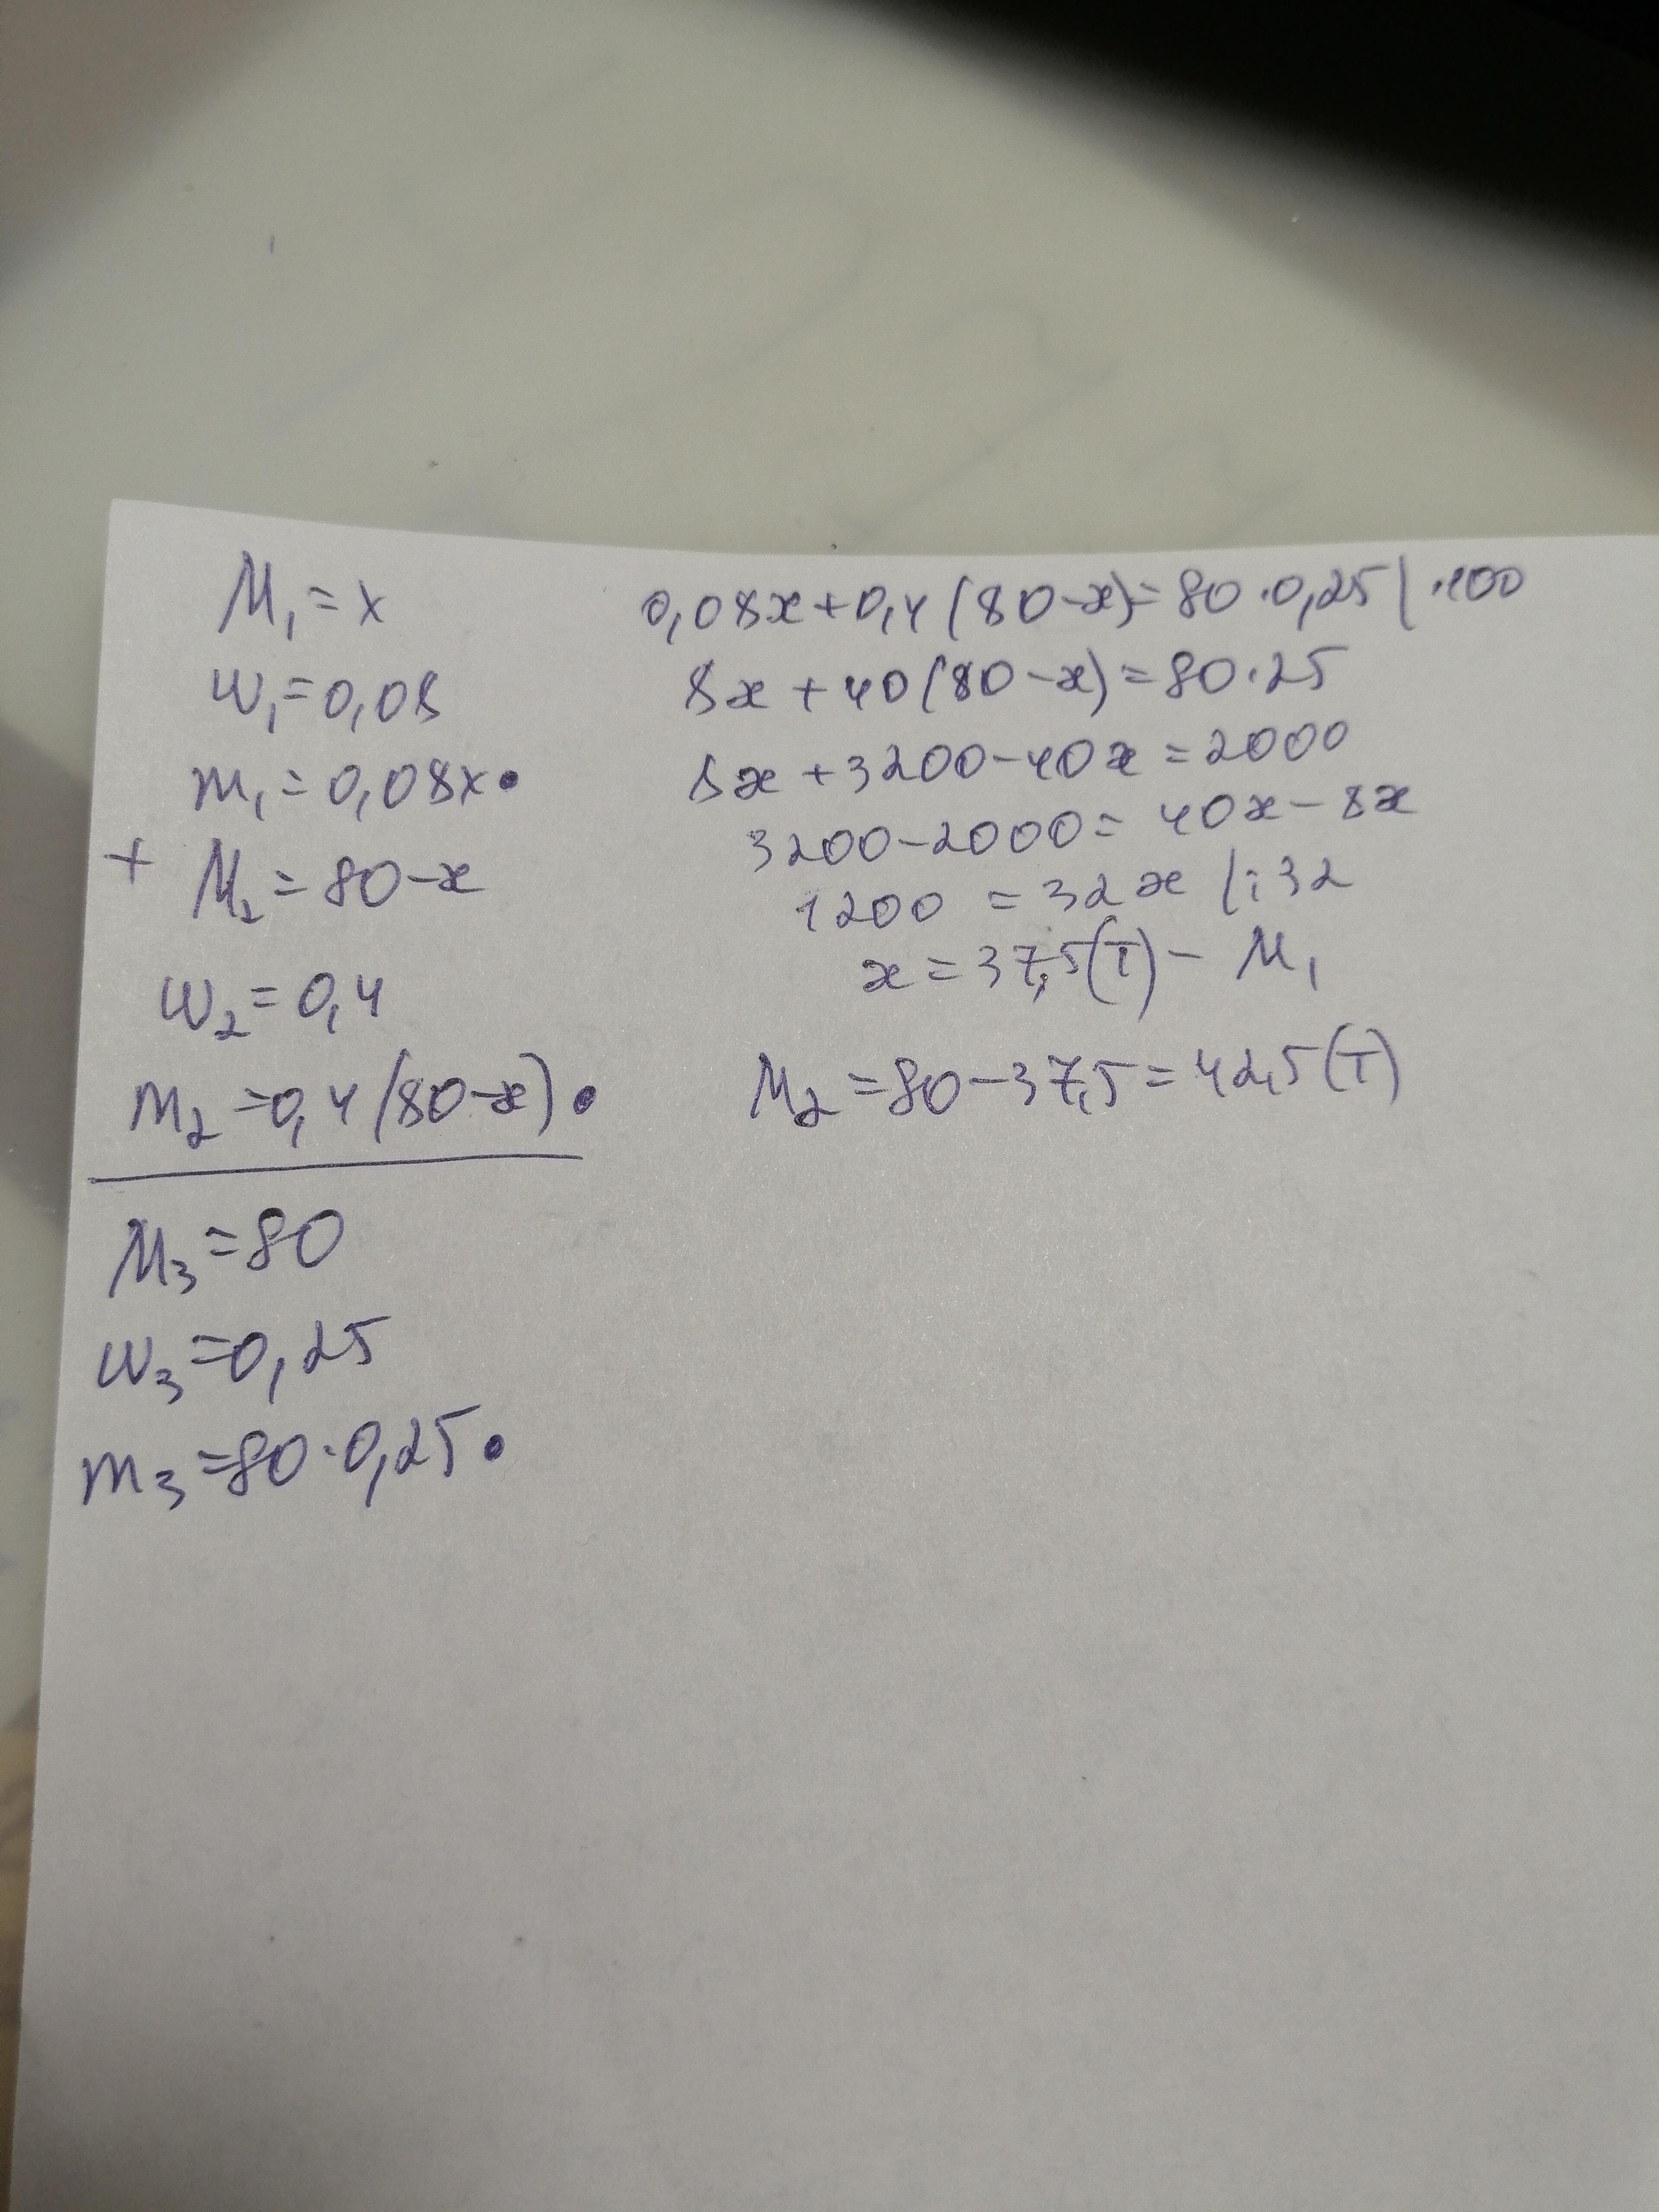 M₁ = x
w₁ = 0,08
m₁ = 0,08x •
+ M₂ = 80 - x
w₂ = 0,4
m₂ = 0,4(80-x) •
M₃ = 80
w₃ = 0,25
m₃ = 80 · 0,25 •
0,08x + 0,4(80-x) = 80 · 0,25 | · 100
8x + 40(80-x) = 80 · 25
8x + 3200 - 40x = 2000
3200 - 2000 = 40x - 8x
1200 = 32x | : 32
x = 37,5 (т) - M₁
M₂ = 80 - 37,5 = 42,5 (т)